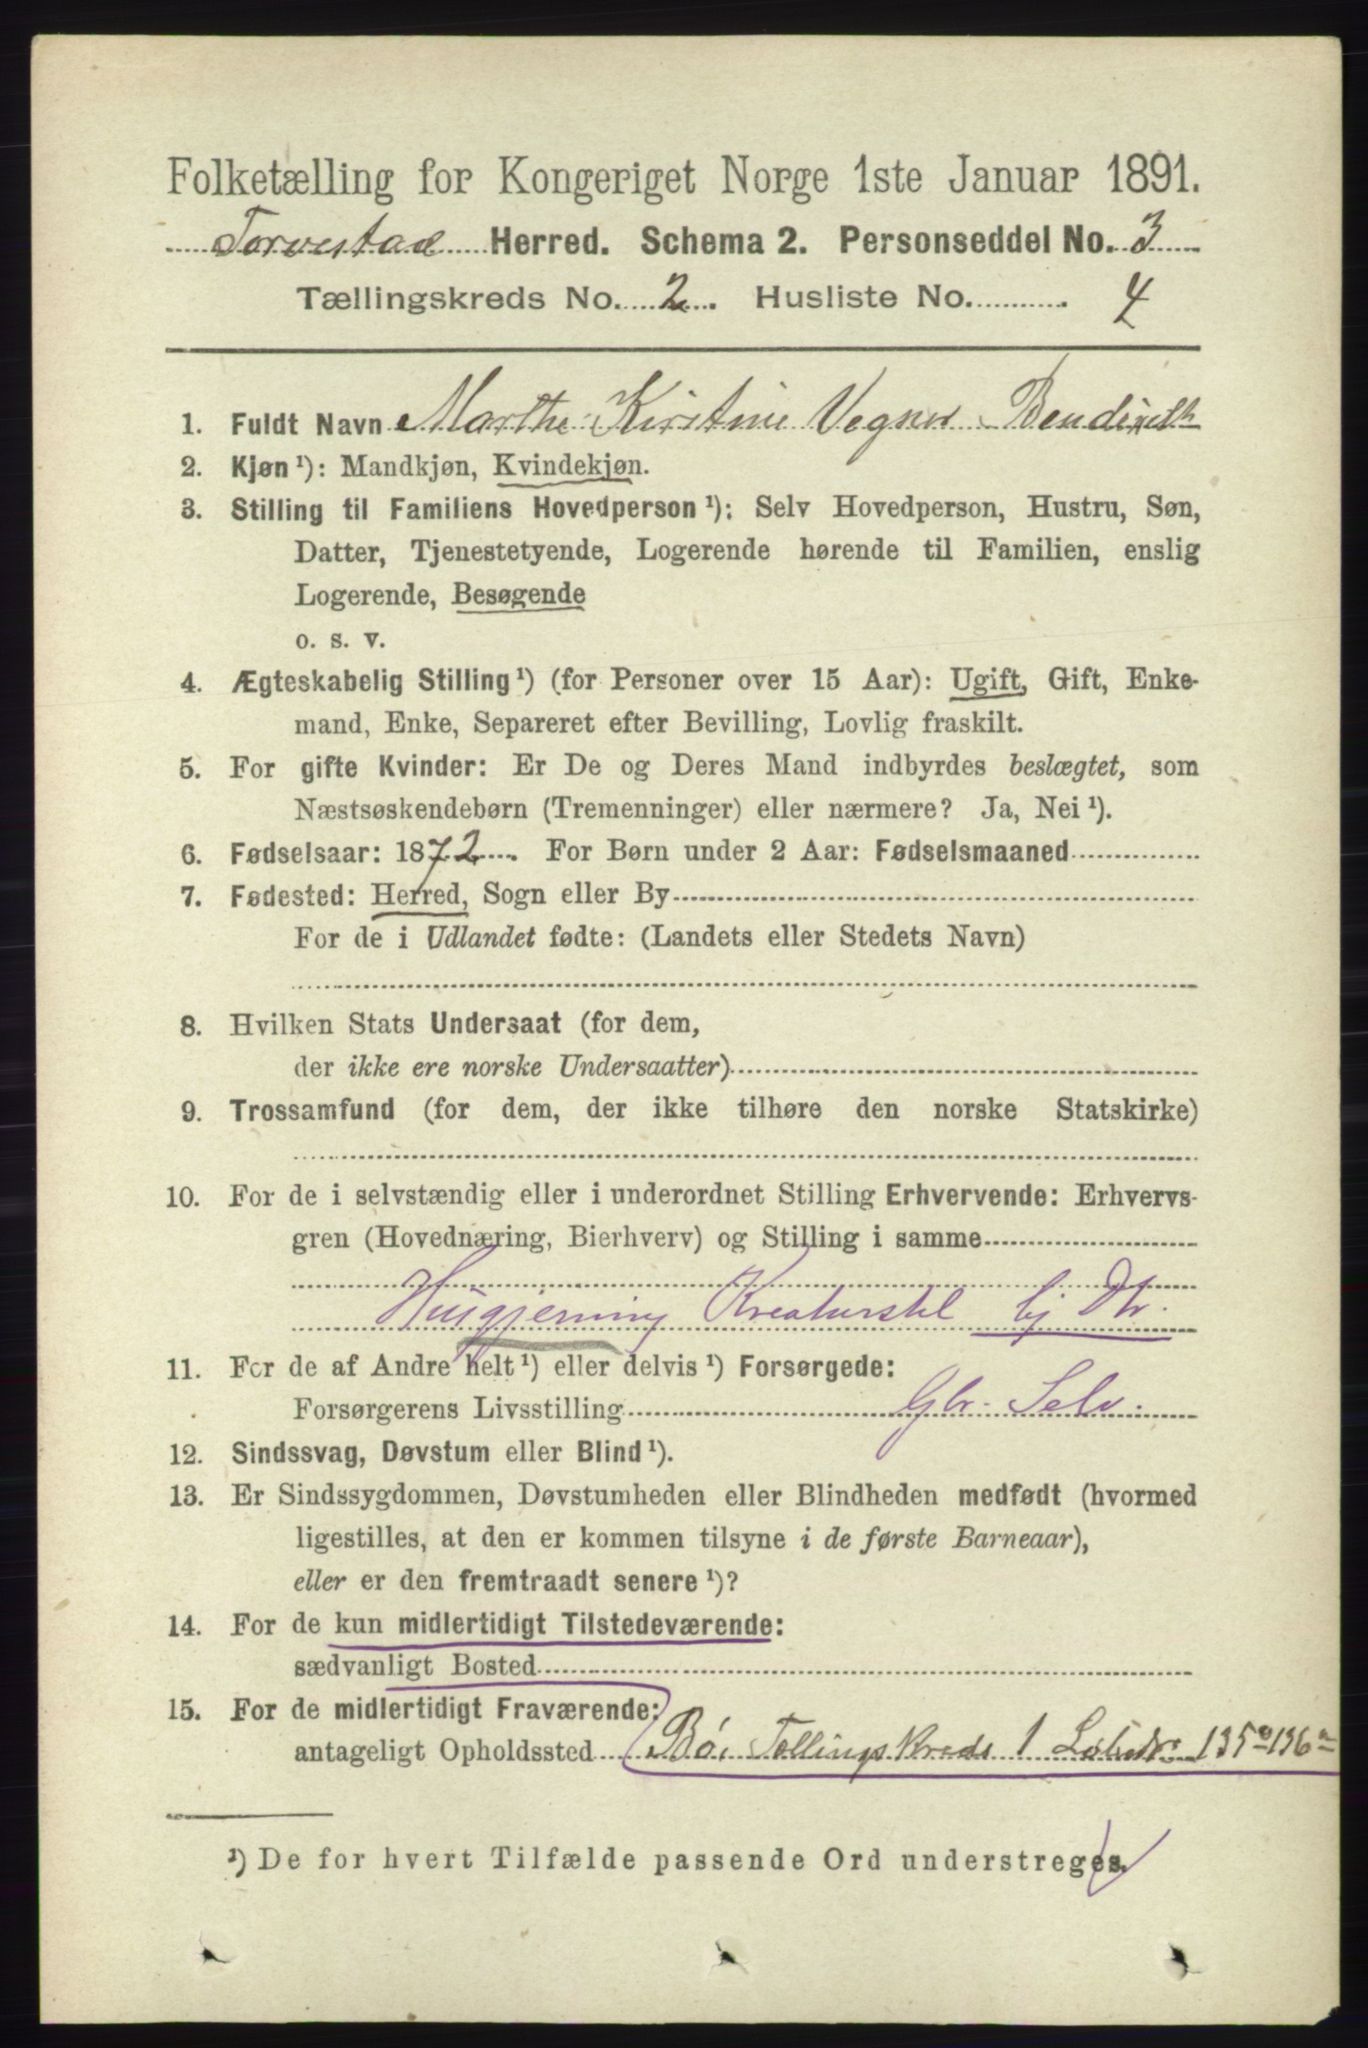 Folketælling for Kongeriget Norge 1ste Januar 1891.
Torvestad Herred. Schema 2. Personseddel No. 3
Tællingskreds No. 2. Husliste No. 4
1. Fuldt Navn Marthe Kirstine Vegner
2. Kjøn ¹): Mandkjøn, Kvindekjøn.
3. Stilling til Familiens Hovedperson ¹): Selv Hovedperson, Hustru, Søn,
Datter, Tjenestetyende, Logerende hørende til Familien, enslig
Logerende, Besøgende
o. s. v.
4. Ægteskabelig Stilling ¹) (for Personer over 15 Aar): Ugift, Gift, Enke-
mand, Enke, Separeret efter Bevilling, Lovlig fraskilt.
5. For gifte Kvinder: Er De og Deres Mand indbyrdes beslægtet, som
Næstsøskendebørn (Tremenninger) eller nærmere? Ja, Nei ¹).
6. Fødselsaar: 1872. For Børn under 2 Aar: Fødselsmaaned
7. Fødested: Herred, Sogn eller By
For de i Udlandet fødte: (Landets eller Stedets Navn)
8. Hvilken Stats Undersaat (for dem,
der ikke ere norske Undersaatter)
9. Trossamfund (for dem, der ikke tilhøre den norske Statskirke)
10. For de i selvstændig eller i underordnet Stilling Erhvervende: Erhvervs-
gren (Hovednæring, Bierhverv) og Stilling i samme
Husgjerning Kreaturstel
11. For de af Andre helt ¹) eller delvis ¹) Forsørgede:
Forsørgerens Livsstilling Gbr. Selv.
12. Sindssvag, Døvstum eller Blind ¹).
13. Er Sindssygdommen, Døvstumheden eller Blindheden medfødt (hvormed
ligestilles, at den er kommen tilsyne i de første Barneaar),
eller er den fremtraadt senere ¹)?
14. For de kun midlertidigt Tilstedeværende:
sædvanligt Bosted
15. For de midlertidigt Fraværende:
antageligt Opholdssted Bø. Tellingskreds 1 135 136
¹) De for hvert Tilfælde passende Ord understreges.